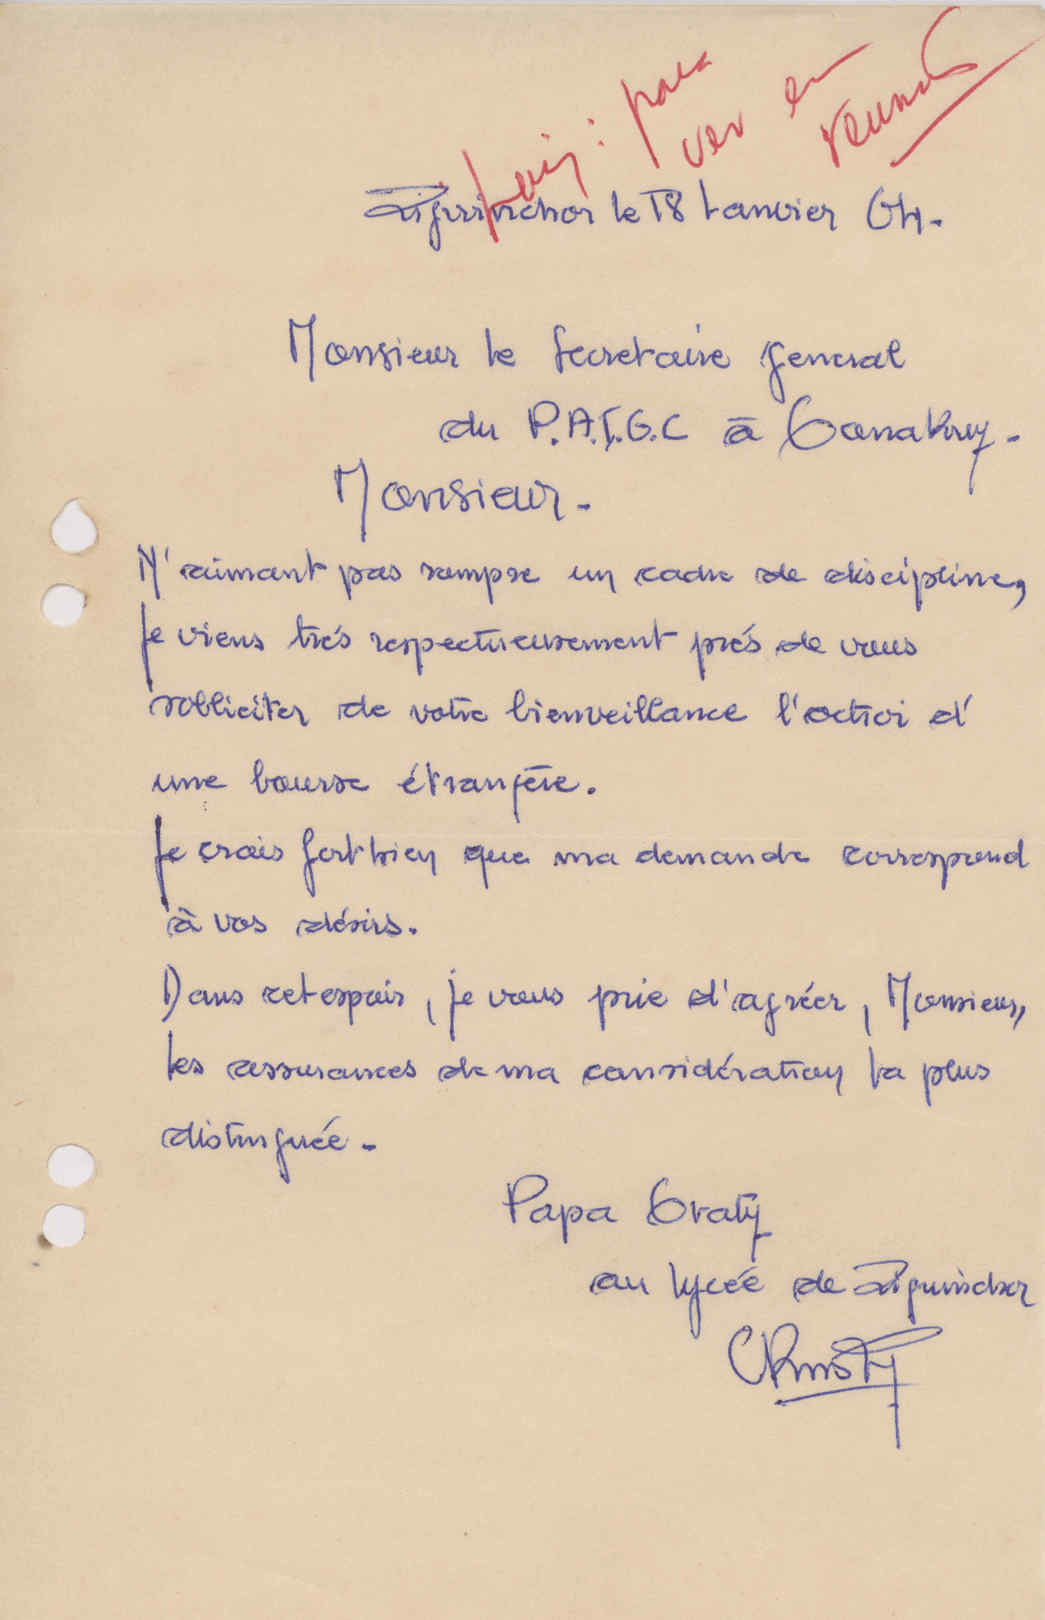 para
ver em
reunião
Ziguinchor le 18 Janvier 64.
Monsieur le Secretaire General
du P.A.I.G.C à Conakry.
Monsieur.
N'aimant pas rompre un cadre de discipline,
Je viens trés respectueusement prés de vous
solliciter de votre bienveillance l'octroi d'
une bourse étrangère.
Je crois fort bien que ma demande correspond
à vos désirs.
Dans cet espoir, je vous prie d'agréer, Monsieur,
les assurances de ma considération la plus
distinguée.
Papa
au lycée de Ziguinchor